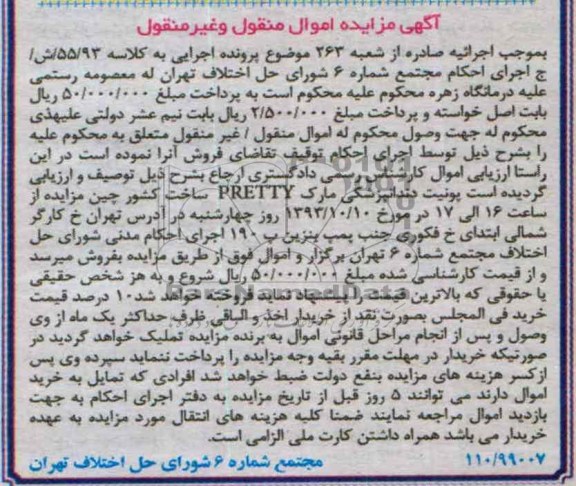 آگهی مزایده اموال منقول وغیرمنقول
بموجب اجرائیه صادره از شعبه ۲۶۳ موضوع پرونده اجرایی به کلاسه ۵۵/۹۳/ش/
ج اجرای احکام مجتمع شماره ۶ شورای حل اختلاف تهران له معصومه رستمی
علیه درمانگاه زهره محکوم علیه محکوم است به پرداخت مبلغ ۵۰/۰۰۰/۰۰۰ ریال
بابت اصل خواسته و پرداخت مبلغ ۲/۵۰۰/۰۰۰ ریال بابت نیم عشر دولتی علیهذی
محکوم له جهت وصول محکوم له اموال منقول / غیر منقول متعلق به محکوم علیه
را بشرح ذیل توسط اجرای احکام توقیف تقاضای فروش آنرا نموده است در این
راستا ارزیابی اموال کارشناس رسمی دادگستری ارجاع بشرح ذیل توصیف و ارزیابی
گردیده است یونیت دندانپزشکی مارک PRETTY ساخت کشور چین مزایده از
ساعت ۱۶ الی ۱۷ در مورخ ۱۳۹۳/۱۰/۱۰ روز چهارشنبه در آدرس تهران خ کارگر
شمالی ابتدای خ فکوری جنب پمپ بنزین پ ۱۹۰ اجرای احکام مدنی شورای حل
اختلاف مجتمع شماره ۶ تهران برگزار و اموال فوق از طریق مزایده بفروش میرسد
و از قیمت کارشناسی شده مبلغ ۵۰/۰۰۰/۰۰۰ ریال شروع و به هز شخص حقیقی
یا حقوقی که بالاترین قیمت را پیشنهاد نماید فروخته خواهد شد ۱۰ درصد قیمت
خرید فی المجلس بصورت نقد از خریدار اخذ و الباقی ظرف حداکثر یک ماه از وی
وصول و پس از انجام مراحل قانونی اموال به برنده مزایده تملیک خواهد گردید در
صورتیکه خریدار در مهلت مقرر بقیه وجه مزایده را پرداخت ننماید سپرده وی پس
ازکسر هزینه های مزایده بنفع دولت ضبط خواهد شد افرادی که تمایل به خرید
اموال دارند می توانند ۵ روز قبل از تاریخ مزایده به دفتر اجرای احکام به جهت
بازدید اموال مراجعه نمایند ضمنا کلیه هزینه های انتقال مورد مزایده به عهده
خریدار می باشد همراه داشتن کارت ملی الزامی است.
۱۱۰/۹۹۰۰۷ مجتمع شماره ۶ شورای حل اختلاف تهران